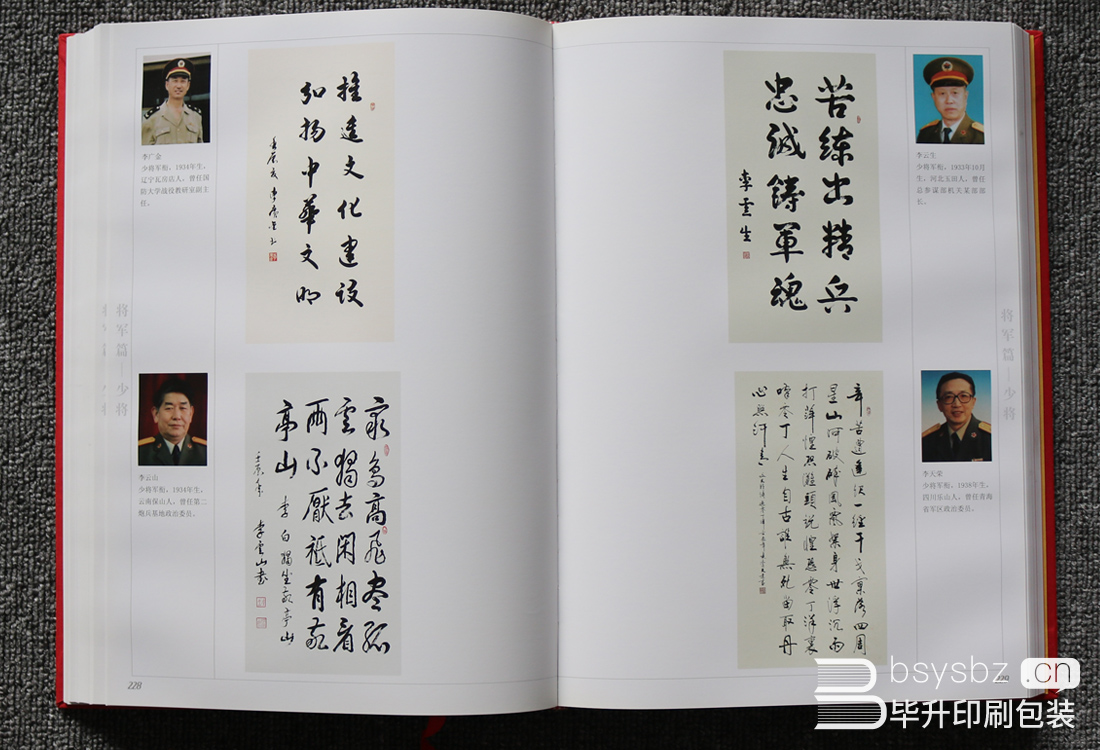 李广金
少将军衔，1934年生，
辽宁瓦房店人，曾任国
防大学战役教研室副主
任。
推進文化建设
弘扬中華文明
将军篇—少将
李云山
少将军衔，1934年生，
云南保山人，曾任第二
炮兵基地政治委员。
众鳥高飛尽孤
雲獨去閑相看
兩不厭祗有敬
亭山 李白獨坐敬亭山
壬辰年 李雲山書
228
苦練出精兵
忠誠鑄軍魂
李雲生
李云生
少将军衔，1933年10月
生，河北玉田人，曾任
总参谋部机关某部部
长。
将军篇—少将
辛苦遭逢起一經干戈寥落四周
星山河破碎風飄絮身世浮沉雨
打萍惶恐灘頭說惶恐零丁洋裏
嘆零丁人生自古誰無死留取丹
心照汗青
李天荣
少将军衔，1938年生，
四川乐山人，曾任青海
省军区政治委员。
bsysbz.cn
毕升印刷包装